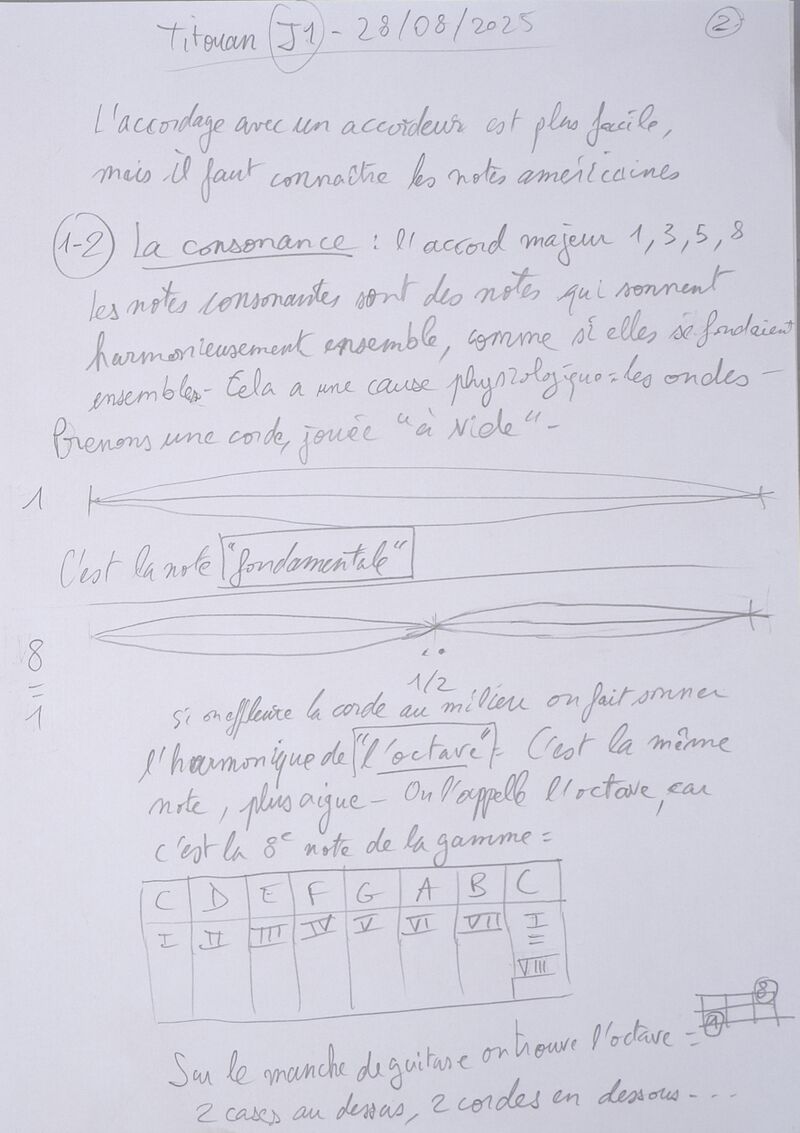 Titouan J1 - 28/08/2025
2
L'accordage avec un accordeur est plus facile,
mais il faut connaître les notes américaines
1-2 La consonance : l'accord majeur 1, 3, 5, 8
Les notes consonantes sont des notes qui sonnent
harmonieusement ensemble, comme si elles se fondaient
ensembles - Cela a une cause physiologique = les ondes -
Prenons une corde, jouée "à vide" -
1
C'est la note "fondamentale"
8
=
1
1/2
si on effleure la corde au milieu on fait sonner
l'harmonique de "l'octave" - C'est la même
note, plus aigue - On l'appelle l'octave, car
c'est la 8e note de la gamme =
C D E F G A B C
I II III IV V VI VII I
=
VIII
Sur le manche de guitare on trouve l'octave =
1 8
2 cases au dessus, 2 cordes en dessous - ...